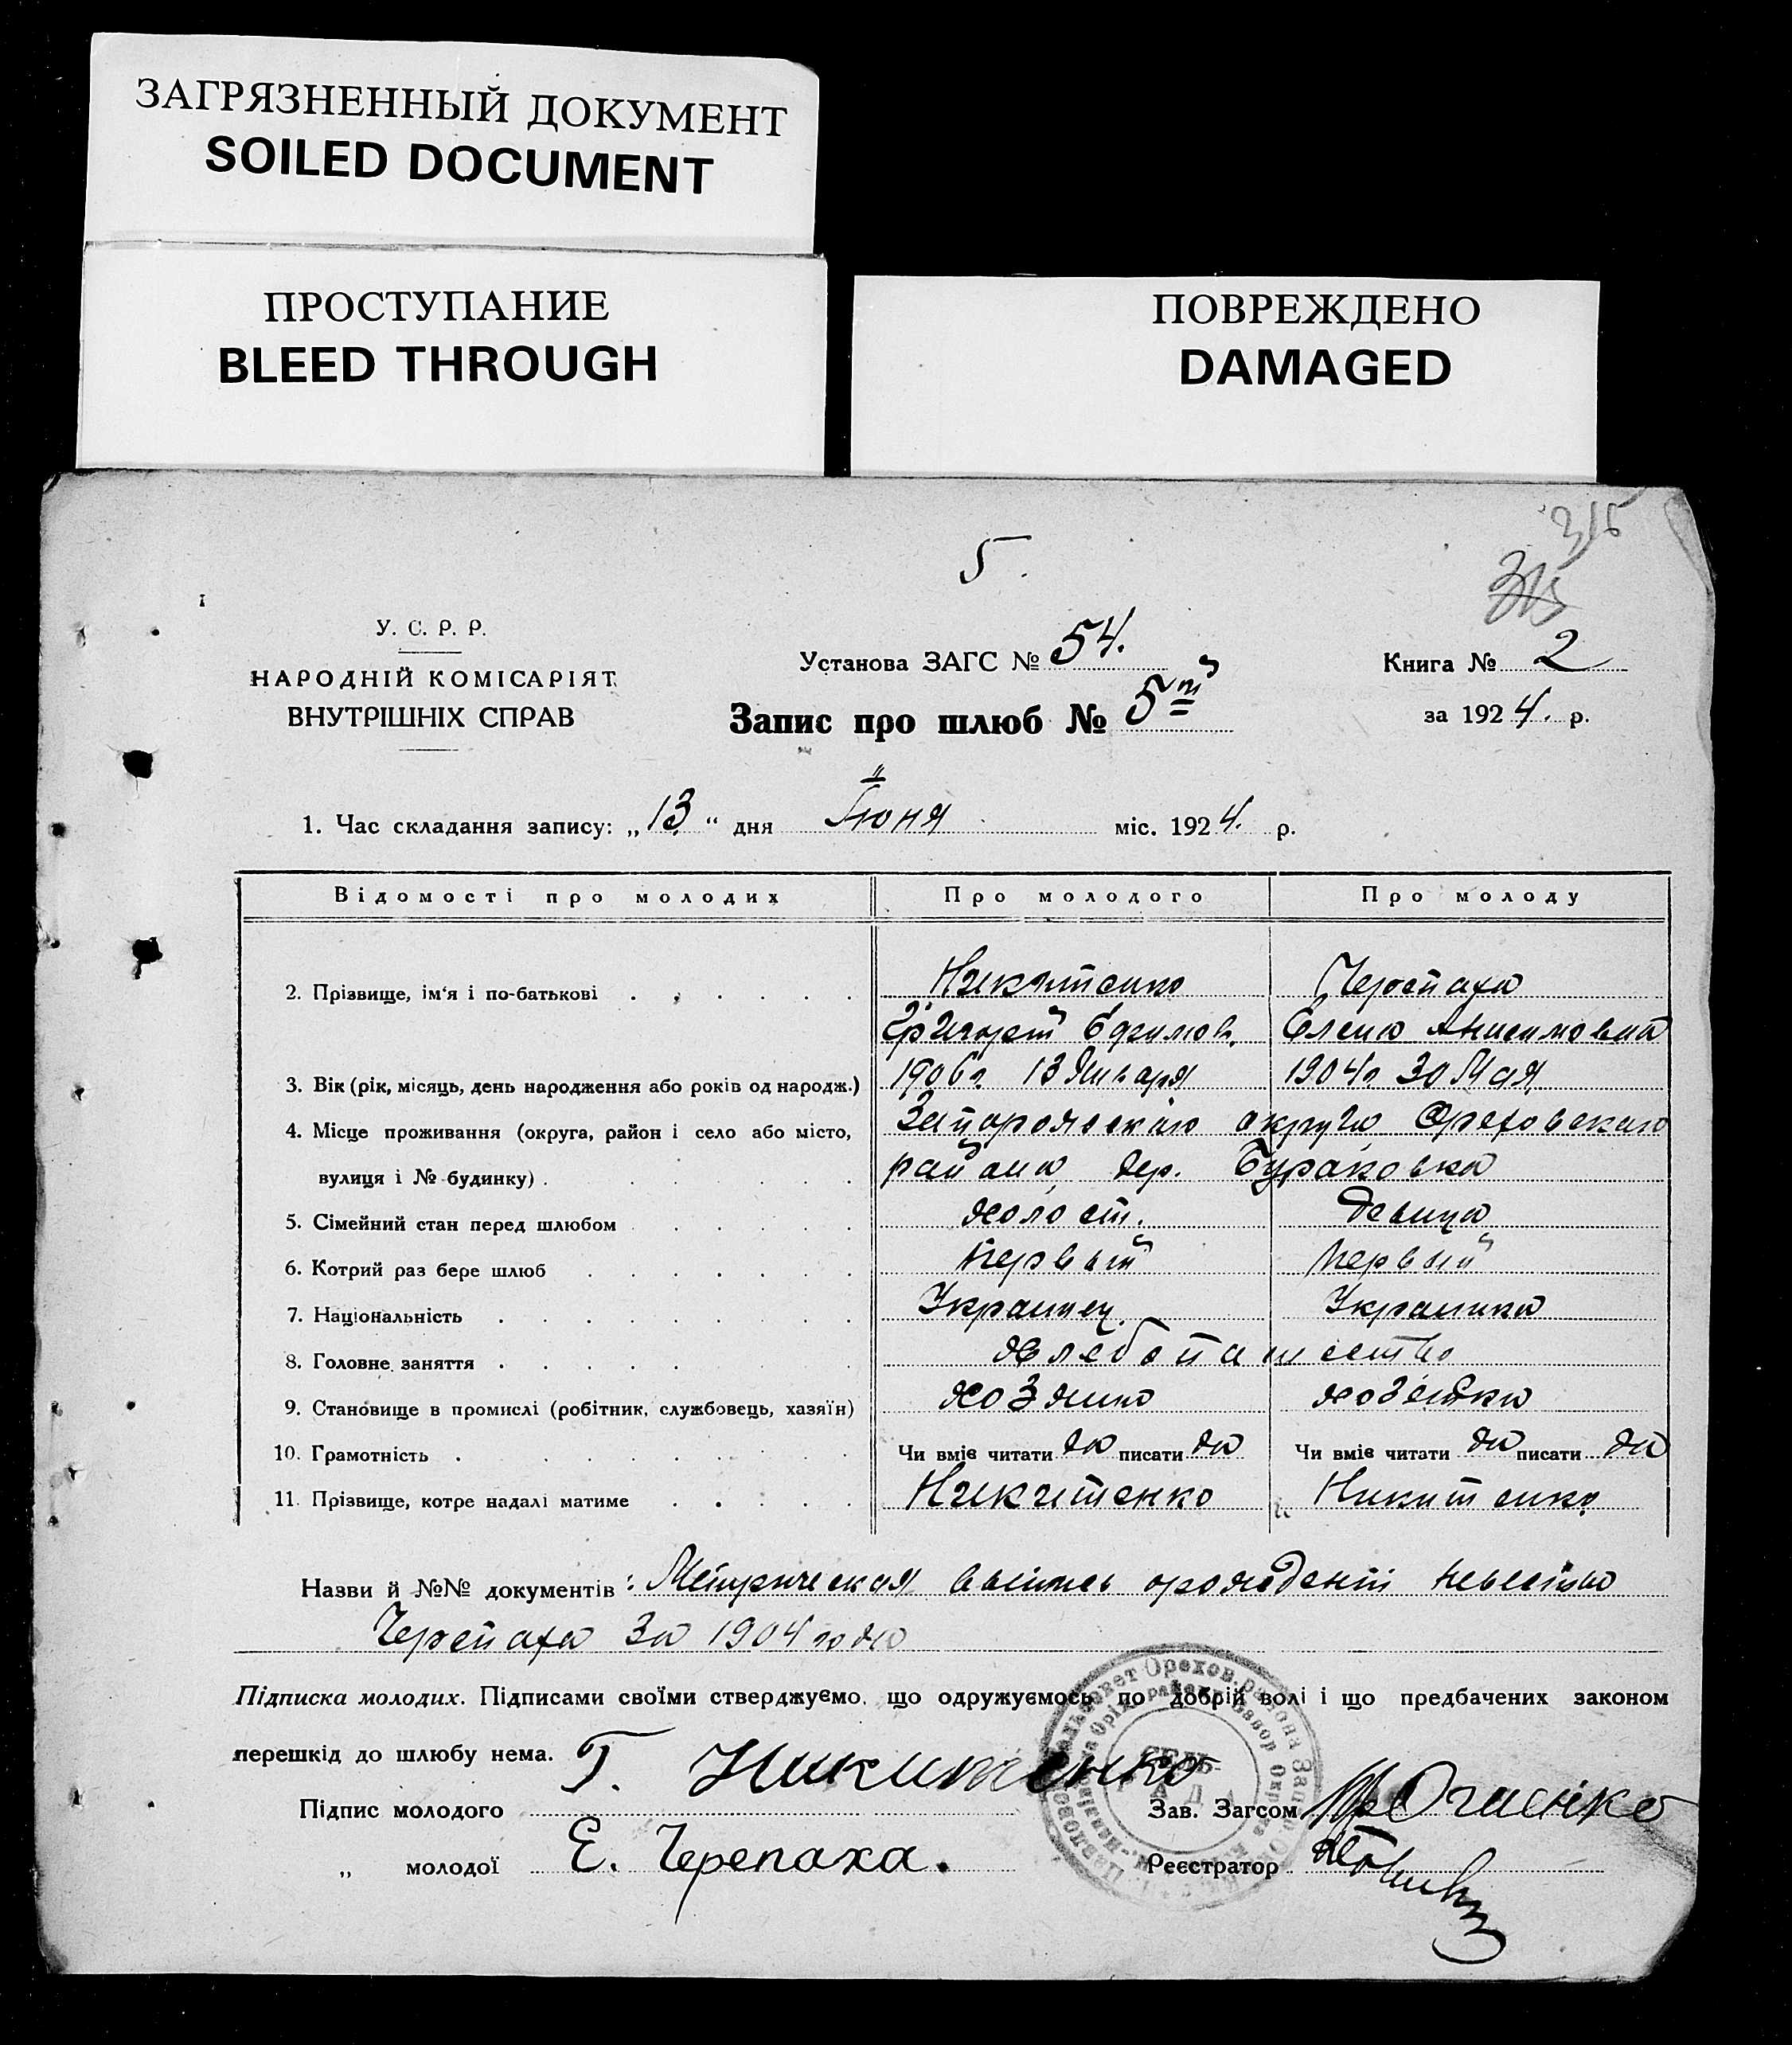 ЗАГРЯЗНЕННЫЙ ДОКУМЕНТ
SOILED DOCUMENT
ПРОСТУПАНИЕ
BLEED THROUGH
ПОВРЕЖДЕНО
DAMAGED
315
5.
У. С. Р. Р.
НАРОДНІЙ КОМІСАРІЯТ
ВНУТРІШНІХ СПРАВ
Установа ЗАГС № 54.
Запис про шлюб № 5й
Книга № 2
за 1924. р.
1. Час складання запису: „13“ дня Июня міс. 1924. р.
Відомості про молодих Про молодого Про молоду
2. Прізвище, ім'я і по-батькові Никитенко Черепаха
Григорий Ефимов. Елена Анисимовна
3. Вік (рік, місяць, день народження або років од народж.) 1906 г. 13 Января 1904 г. 30 Мая
4. Місце проживання (округа, район і село або місто, Запорожского округа Ореховского
вулиця і № будинку) района дер. Бураковка
5. Сімейний стан перед шлюбом холост. девица
6. Котрий раз бере шлюб первый первый
7. Національність Украинец Украинка
8. Головне заняття хлебопашество
9. Становище в промислі (робітник, службовець, хазяїн)
10. Грамотність Чи вміє читати да писати да Чи вміє читати да писати да
11. Прізвище, котре надалі матиме Никитенко Никитенко
Назви й №№ документів: Метрическая выпись невесты
Черепаха за 1904 года
Підписка молодих. Підписами своїми стверджуємо, що одружуємось по добрій волі і що предбачених законом
перешкід до шлюбу нема.
Підпис молодого Г. Никитенко
Зав. Загсом
„ молодої Е. Черепаха.
Реєстратор